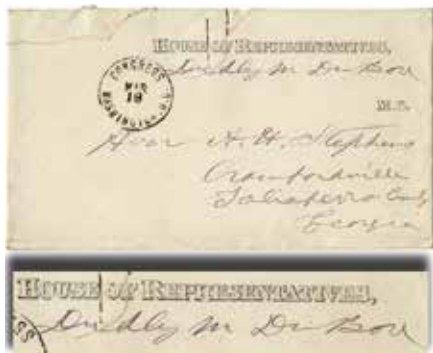 HOUSE OF REPRESENTATIVES,
Dudly M DuBose
M.C.
CONGRESS
MAR
19
WASHINGTON
Hon A. H. Stephens
Crawfordville
Taliaferro Couty
Georgia
HOUSE OF REPRESENTATIVES,
Dudly M DuBose
SS